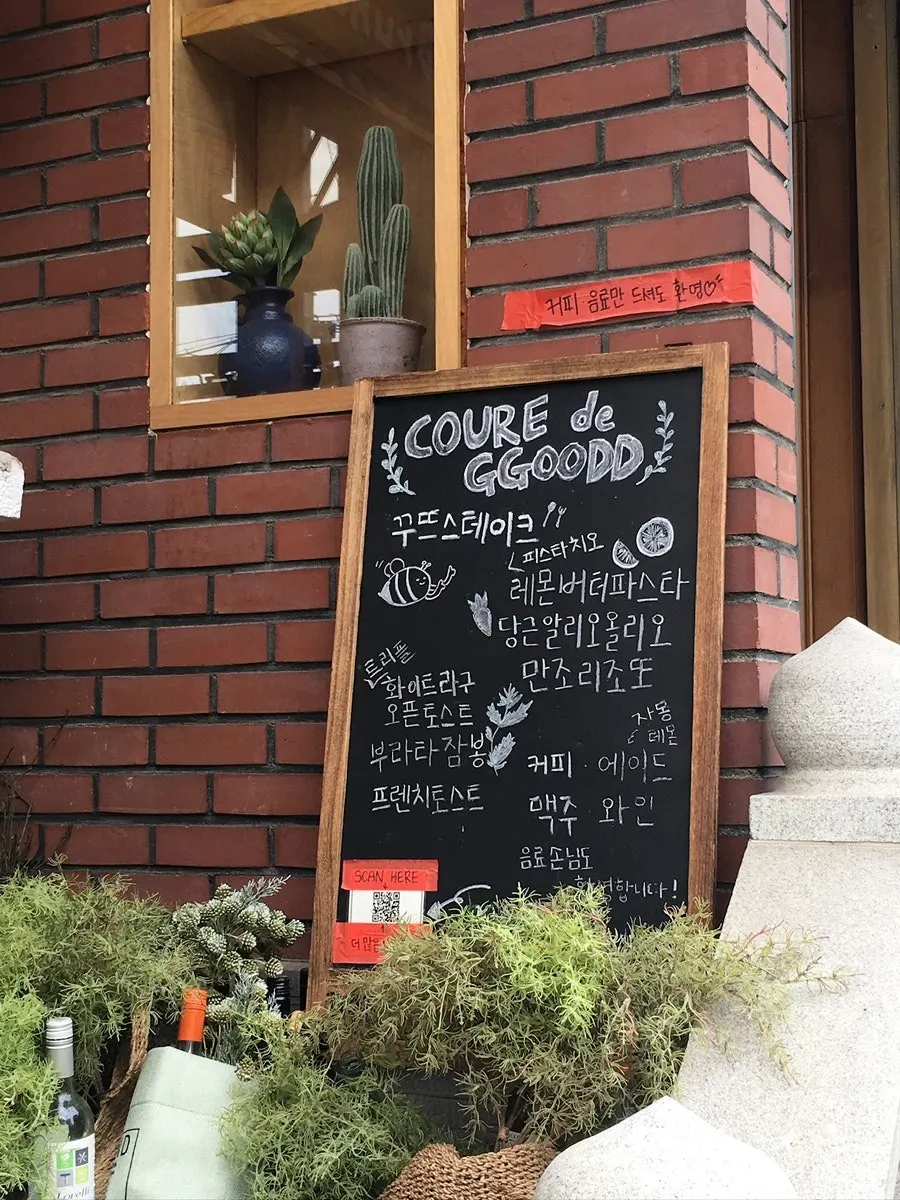 커피·음료만 드셔도 환영♡
COURE de
GGOODD
꾸뜨스테이크
피스타치오
레몬버터파스타
당근알리오올리오
만조리조또
트러플
화이트라구
오픈토스트
부라타잠봉
프렌치토스트
자몽
레몬
커피·에이드
맥주·와인
음료손님도
환영합니다!
SCAN HERE
더 많은